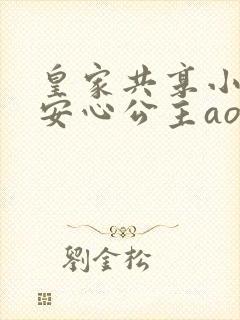 皇家共享小
安心公主ao
劉金松